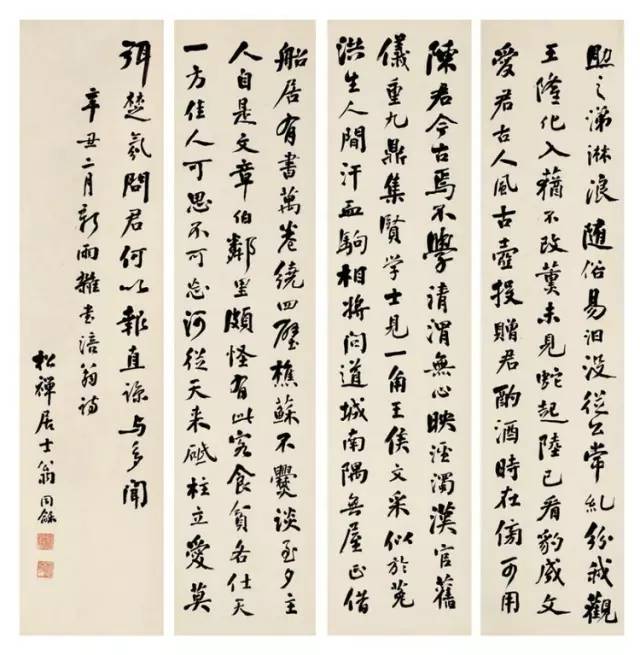 助之涕淋浪随俗易汩没從公常糺紛我觀
王隆化入蕕不改薰未見蛇起陸已看豹成文
愛君古人風古壺投贈君酌酒時在傍可用
陳君今古焉不學清渭無心映涇濁漢官舊
儀重九鼎集賢学士見一角王侯文采似於菟
洪生人間汗血駒相將问道城南隅無屋正借
船居有書萬卷繞四壁樵蘇不爨談至夕主
人自是文章伯鄰里頗怪有此客食貧各仕天
一方佳人可思不可忘河從天来砥柱立愛莫
弭楚氛問君何以報直諒与多聞
辛丑二月新雨雜書涪翁詩
松禪居士翁同龢